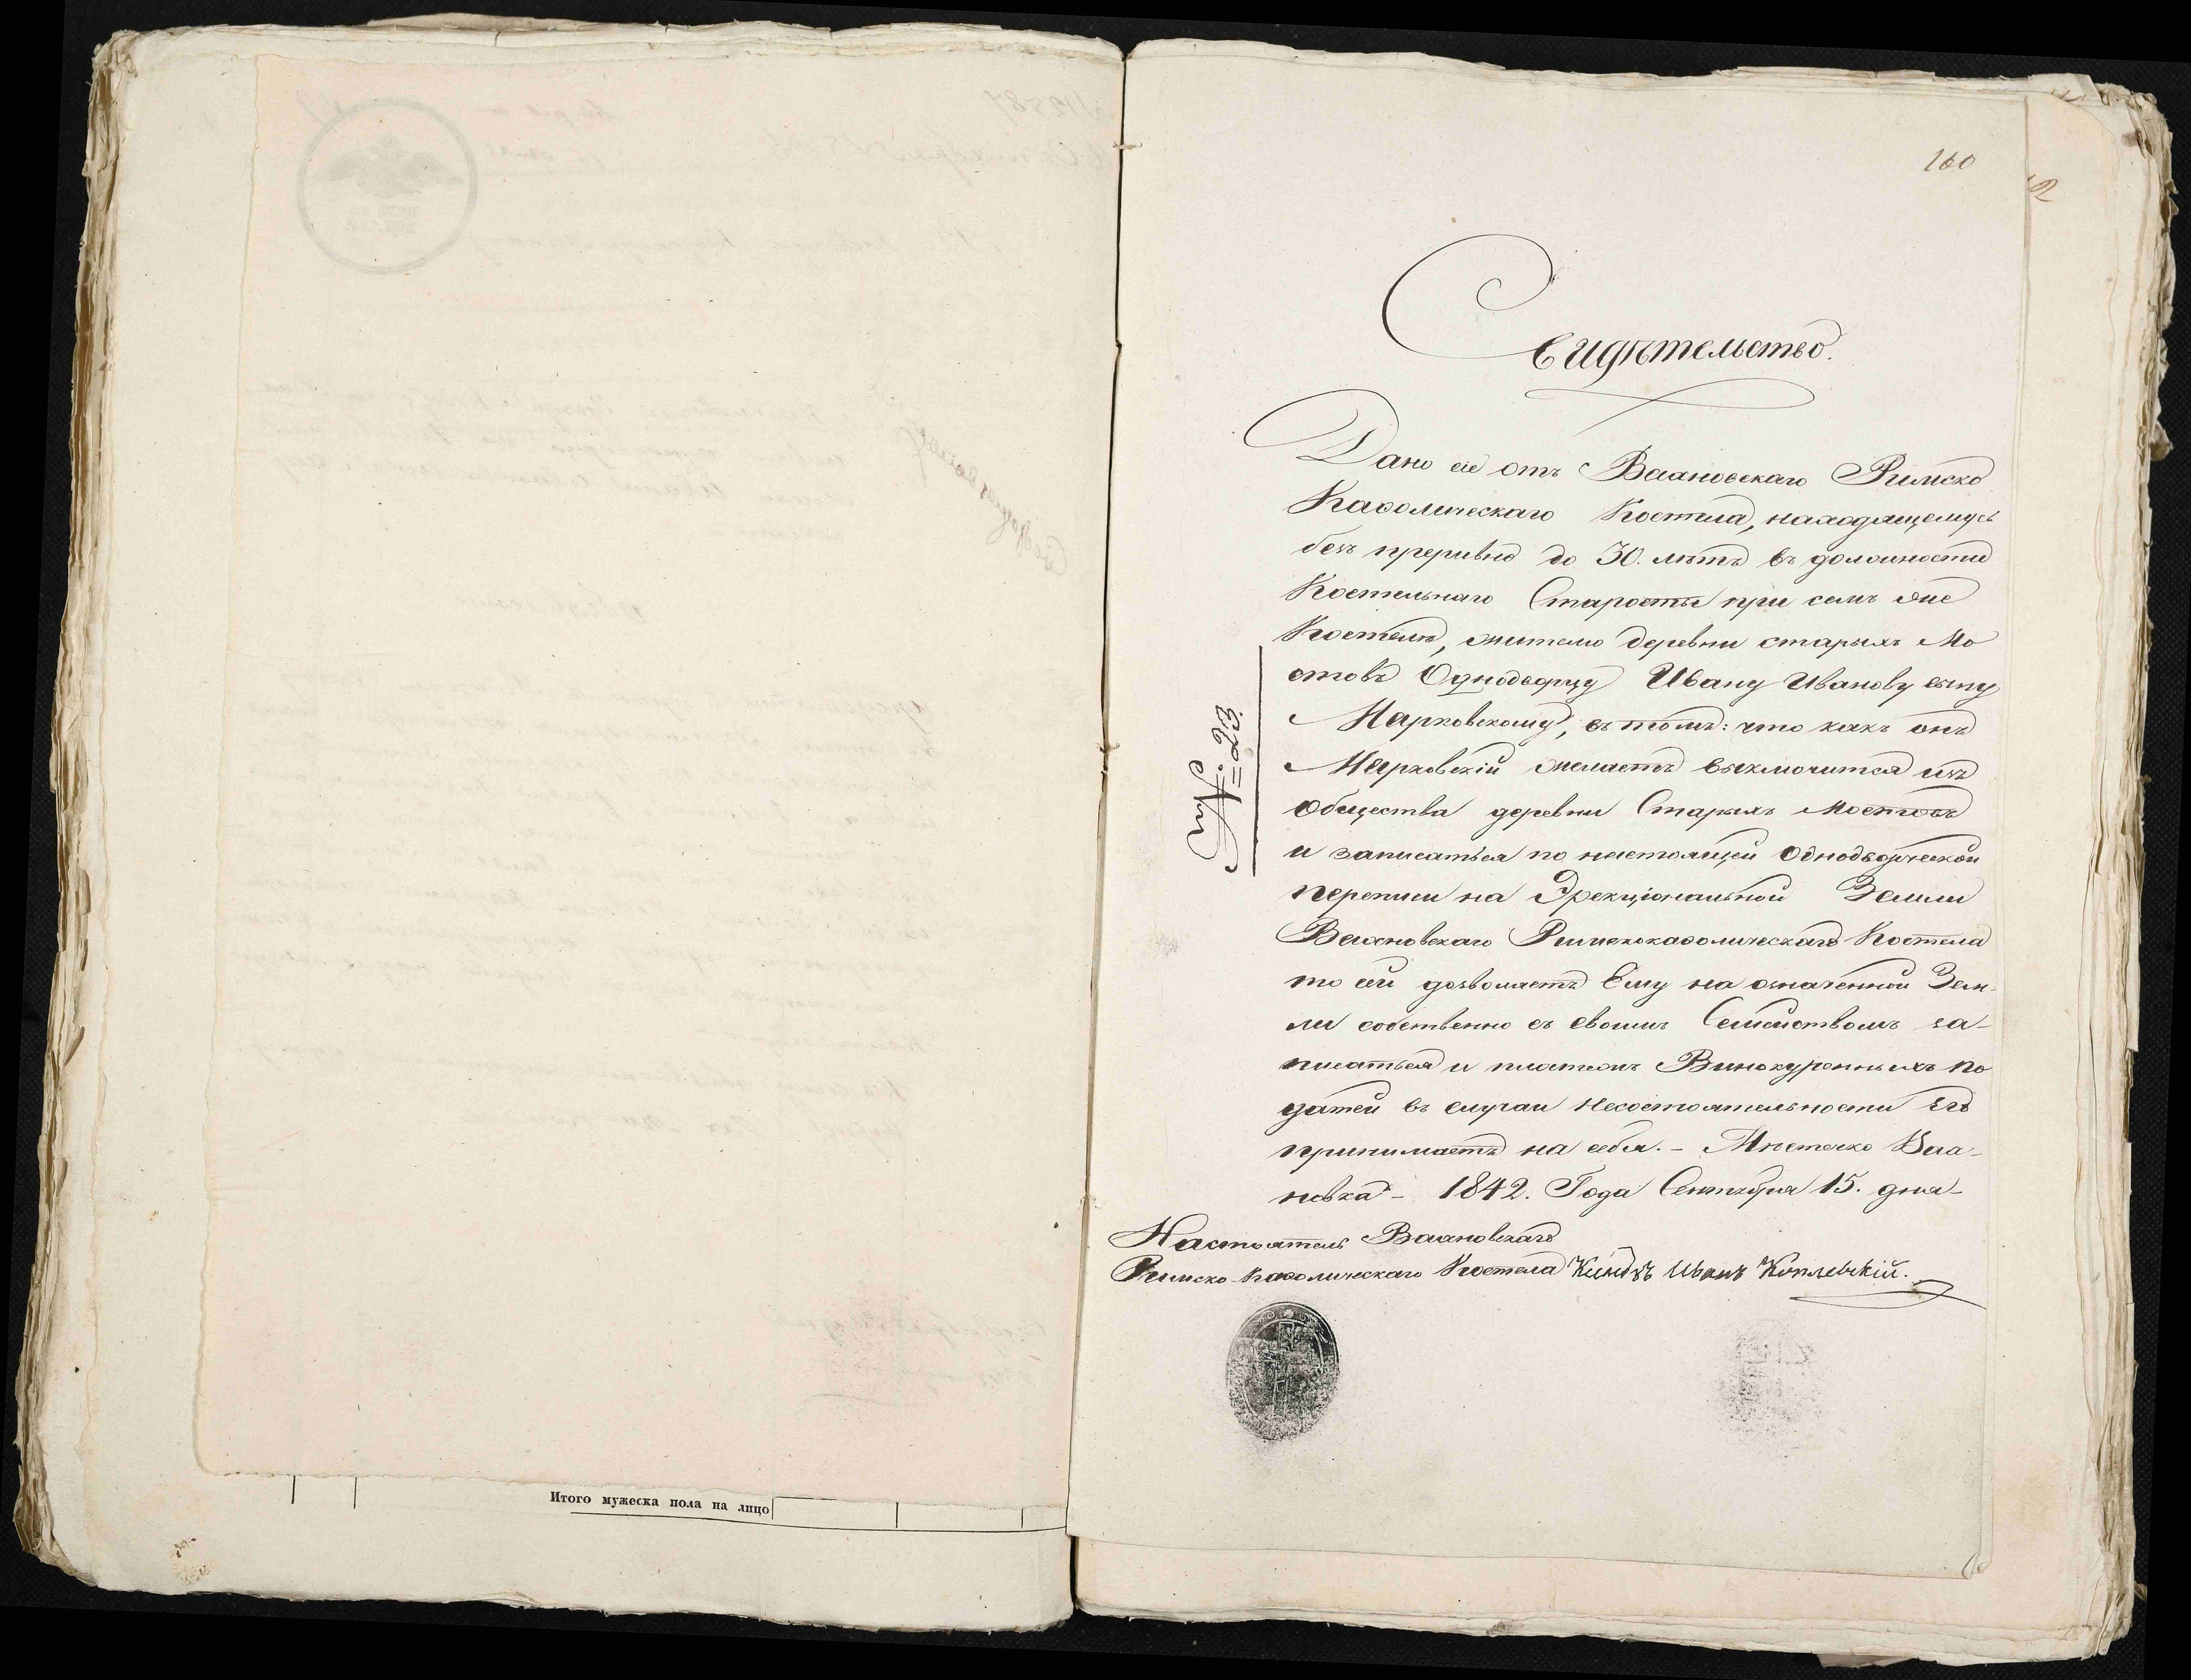 Итого мужеска пола на лицо
160
Свидѣтельство.
Дано сіе отъ Вахновскаго Римско
Каѳолическаго Костела, находящемуся
безъ преривно до 30. лѣтъ въ должности
Костельнаго Старосты при семъ же
Костелѣ, жителю деревни старыхъ Мо
стовъ Однодворцу Ивану Иванову сыну
Марковскому, въ томъ: что какъ онъ
Марковскій желаетъ выключится изъ
Общества деревни Старыхъ Мостовъ
и записаться по настоящей Однодворческой
переписи на Эрекціональной Земли
Вахновскаго Римскокаѳолическаго Костела
то сей дозволяетъ Ему на означенной Зем-
ли собственно съ своимъ Семействомъ за-
писаться и платежъ Винокуренныхъ по
датей въ случаи несостоятельности Его
принимаетъ на себя. - Мѣстечко Вах-
новка - 1842. Года Сентября 15. дня -
Настоятель Вахновскаго
Римско-Каѳолическаго Костела Ксіондзъ Иванъ Коплевскій.